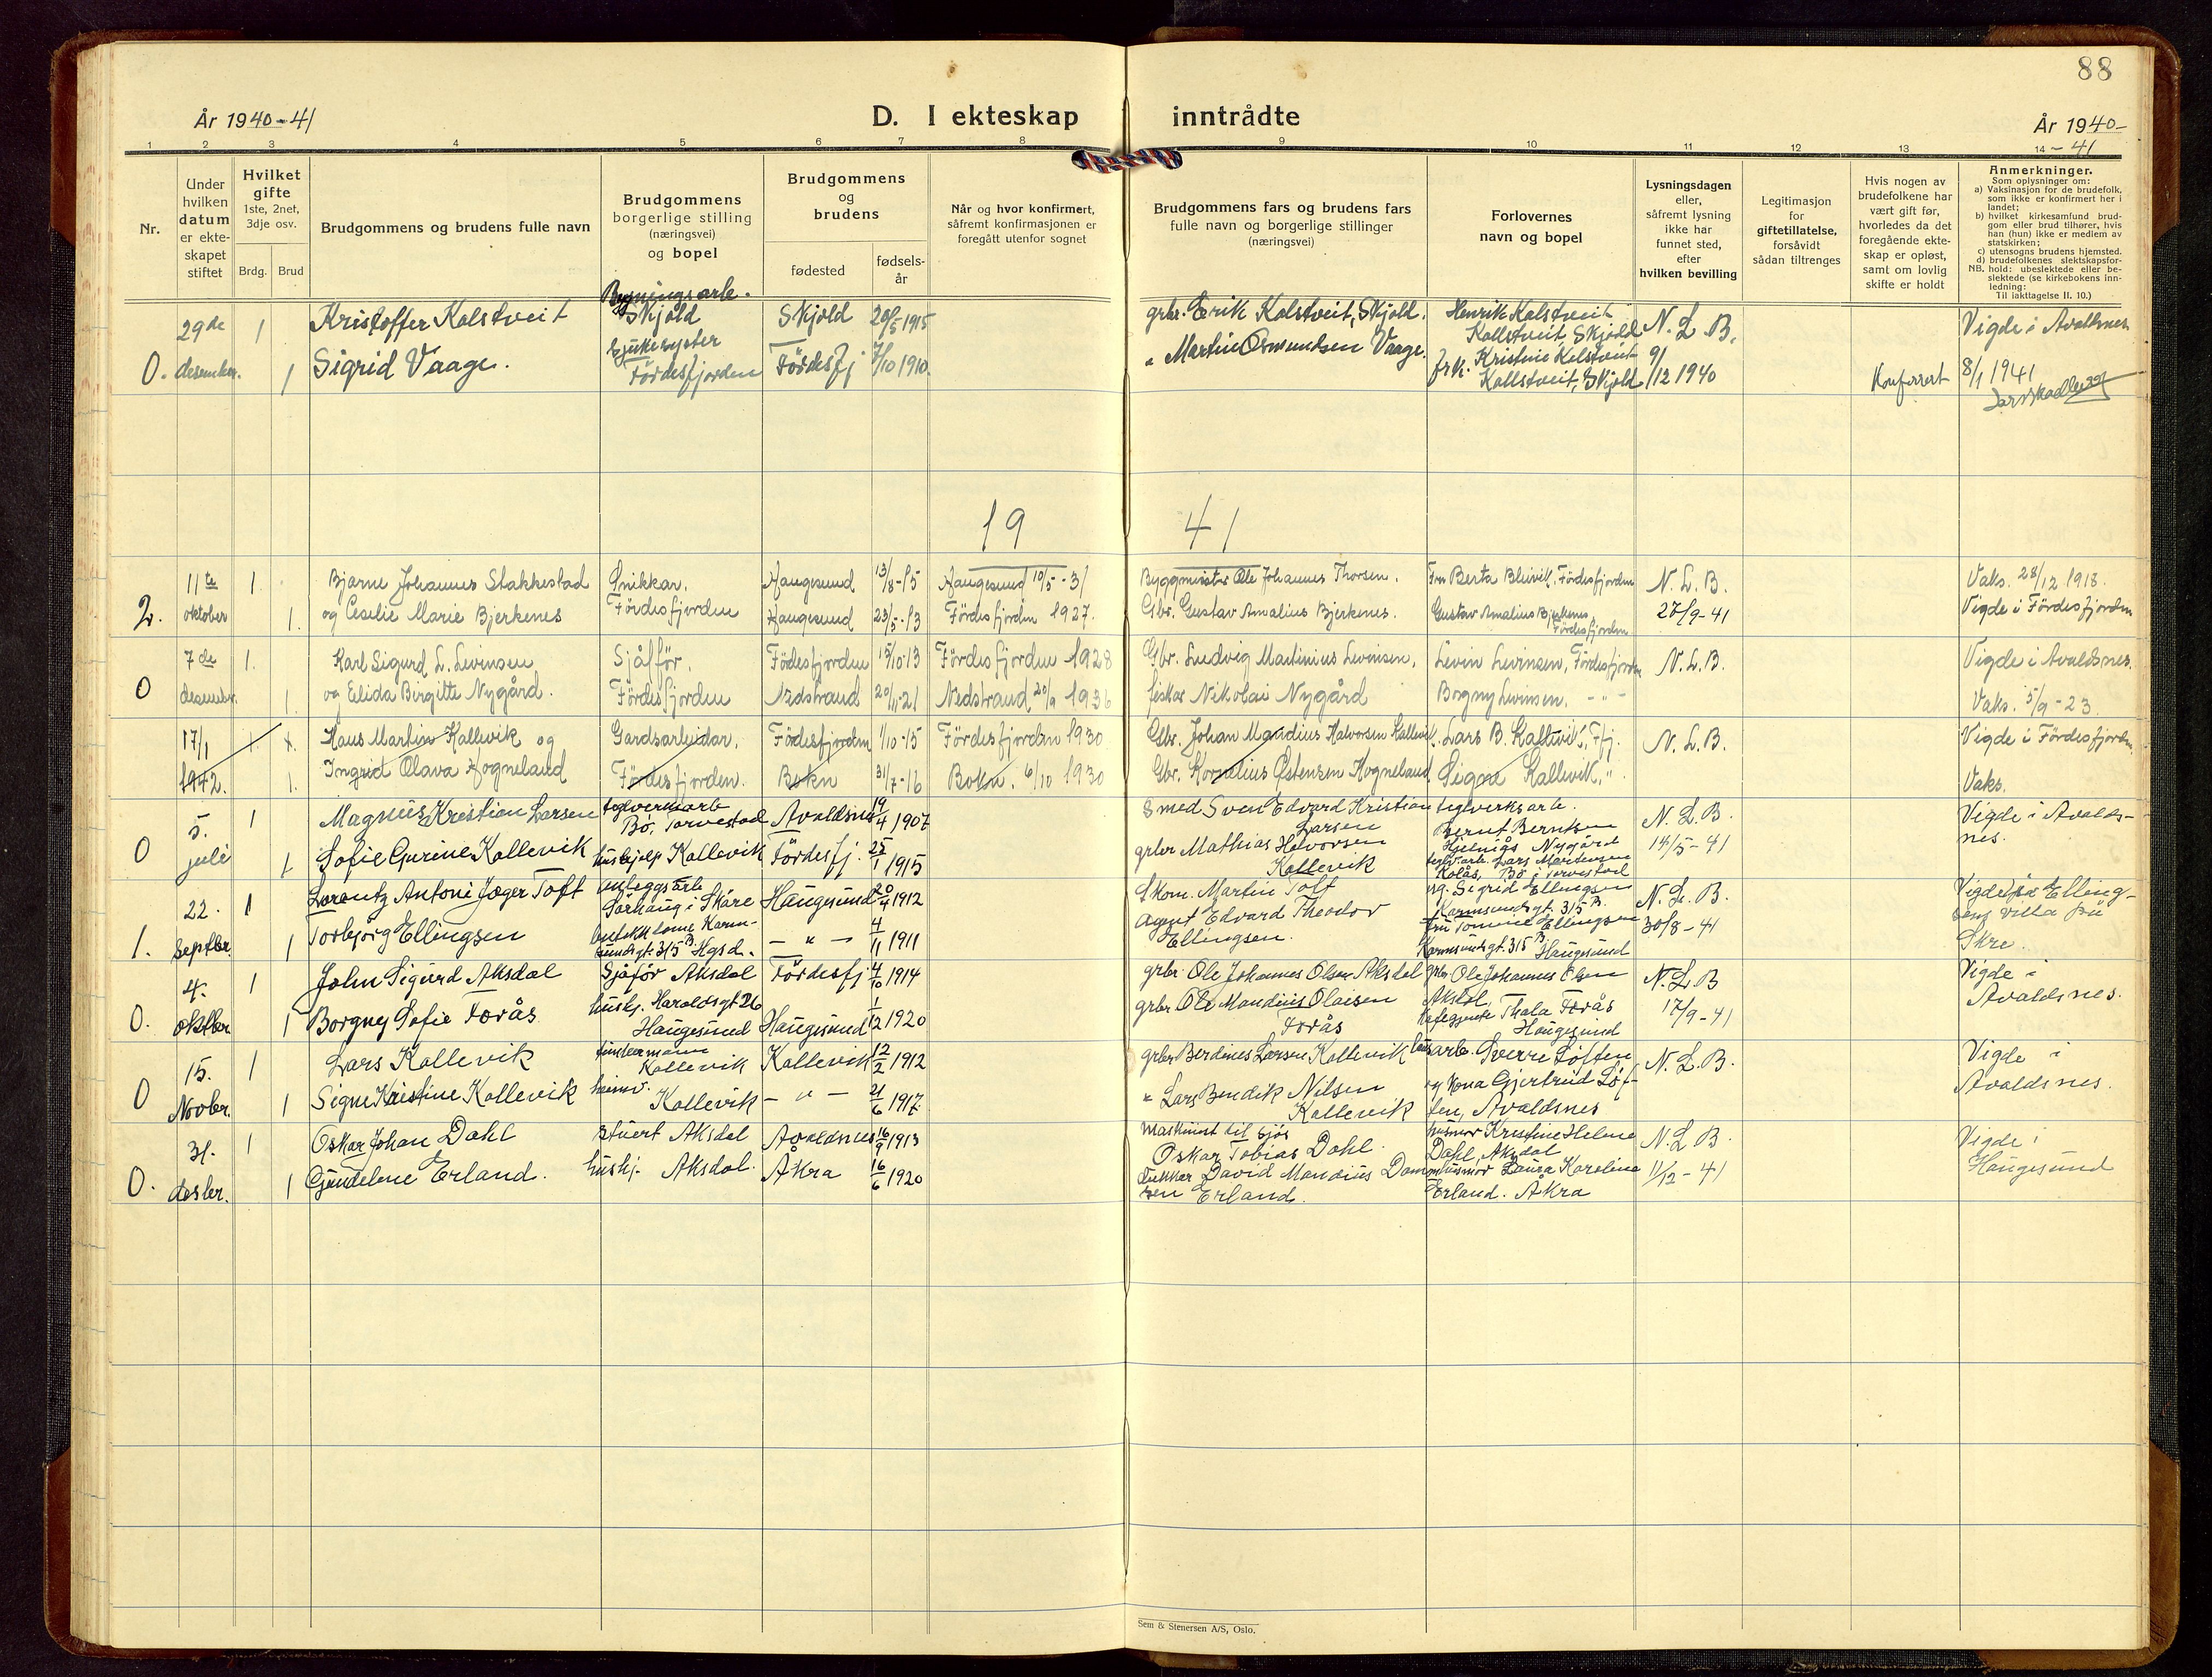 88
År 1940-41
D. I ekteskap inntrådte
År 1940-
-41
1 2 3 4 5 6 7 8 9 10 11 12 13 14
Nr.
Under hvilken datum er ekteskapet stiftet
Hvilket gifte
1ste, 2net, 3dje osv.
Brdg. Brud
Brudgommens og brudens fulle navn
Brudgommens borgerlige stilling (næringsvei) og bopel
Brudgommens og brudens
fødested
fødselsår
Når og hvor konfirmert, såfremt konfirmasjonen er foregått utenfor sognet
Brudgommens fars og brudens fars fulle navn og borgerlige stillinger (næringsvei)
Forlovernes navn og bopel
Lysningsdagen eller, såfremt lysning ikke har funnet sted, efter hvilken bevilling
Legitimasjon for giftetillatelse, forsåvidt sådan tiltrenges
Hvis nogen av brudefolkene har vært gift før, hvorledes da det foregående ekteskap er opløst, samt om lovlig skifte er holdt
Anmerkninger.
Som oplysninger om:
a) Vaksinasjon for de brudefolk, som ikke er konfirmert her i landet;
b) hvilket kirkesamfund brudgom eller brud tilhører, hvis han (hun) ikke er medlem av statskirken;
c) utensogns brudens hjemsted.
d) brudefolkenes slektskapsforhold: ubeslektede eller beslektede (se kirkebokens innledning:
NB.
Til iakttagelse II. 10.)
29de 1 Kristoffer Kolstveit Bygningsarb. Skjold Skjold 20/5 1915 grbr. Erik Kolstveit, Skjold. Henrik Kolstveit Kollstveit Skjold N. L. B. Vigde i Avaldsnes
0. desember. 1 Sigrid Vaage. Sjukesyster Fördesfjorden Fördesfj 7/10 1910. " Martin Osmundsen Vaage. frk. Kristine Kolstveit Kollstveit, Skjold 9/12 1940 Konferert 8/1 1941
19 41
11te 1. Bjarne Johannes Stakkestad Snikkar, Haugesund 13/8-15 Haugesund 10/5-31 Byggmeister Ole Johannes Thorsen. Fru Berta Bleivik, Fördesfjorden N. L. B. Vaks. 28/12 1918.
2. oktober 1. og Cecilie Marie Bjerkenes Fördesfjorden Haugesund 23/5-13 Fördesfjorden 1927. Gbr. Gustav Amalius Bjerkenes. Gustav Amalius Bjerkenes, Fördesfjorden 27/9-41 Vigde i Fördesfjorden
7de 1. Karl Sigurd L. Levinsen Sjåfför, Födesfjorden 15/10-13 Fördesfjorden 1928 Gbr. Ludvig Martinius Levinsen, Levin Levinsen, Fördesfjorden N. L. B. Vigde i Avaldsnes.
0 desember. 1. og Elida Birgitte Nygård. Fördesfjorden Nedstrand 20/11-21 Nedstrand 20/9 1936 fiskar Nikolai Nygård Borgny Levinsen, - " - Vaks. 5/9-23.
17/1 1. 1. Hans Martin Kallevik og Gardsarbeidar, Födesfjorden 1/10-15 Fördesfjorden 1930 Gbr. Johan Mandius Halvorsen Kallevik. Lars B. Kallevik, Ffj. N. L. B. Vigde i Fördesfjorden.
1942. 1. Ingrid Olava Hogneland Fördesfjorden. Bokn 31/7-16 Bokn. 6/10 1930 Gbr. Kornelius Østensen Hogneland Signe Kallevik, " Vaks.
5. 1 Magnus Kristian Larsen teglverksarb Bö, Torvestad Avaldsnes 19/4 1907 Smed Sven Edvard Kristian Larsen teglverksarb. Bernt Berntsen N. L. B. Vigde i Avaldsnes.
0 juli 1 Sofie Gurine Kallevik hushjelp Kallevik Fördesfj. 25/1 1915 grbr Mathias Halvorsen Kallevik Nygård teglv.arb. Lars Mortensen Kolås, Bö i Torvestad 14/5-41
22. 1 Lorentz Antoni Jæger Toft anleggsarb Sörhaug i Skåre Haugesund 20/4 1912 Skom. Martin Toft Sigrid Ellingsen Karmsundsgt. 315 B. N. L. B. Vigde på Ellingsens villa på Skre.
1. septbr. 1 Torbjörg Ellingsen Karmsundsgt. 315 B Hgsd. - " - 4/11 1911 agent Edvard Theodor Ellingsen. fru Tomine Ellingsen Karmsundsgt. 315 B. Haugesund 30/8-41
4. 1 John Sigurd Aksdal Sjåför Aksdal Fördesfj 4/10 1914 grbr Ole Johannes Olsen Aksdal grbr Ole Johannes Olsen Aksdal, N. L. B Vigde i Avaldsnes.
0. oktbr. 1 Borgny Sofie Forås hushj. Haraldsgt 26 Haugesund Haugesund 1/12 1920 grbr Ole Mandius Olaisen Forås Thala Forås Haugesund 17/9-41
15. 1 Lars Kallevik tömmermann Kallevik Kallevik 12/2 1912 grbr Berdines Larsen Kallevik arb. Sverre Löften N. L. B. Vigde i Avaldsnes.
0 Novbr. 1 Signe Kristine Kallevik heimv. Kallevik - " - 21/6 1917. " Lars Bendik Nilsen Kallevik og Kona Gjertrud Löften, Avaldsnes
31. 1 Oskar Johan Dahl Stuert Aksdal Avaldsnes 16/9 1913 Maskinist til sjös Oskar Tobias Dahl. husmor Kristine Helene Dahl, Aksdal N. L. B. Vigde i Haugesund
0. desbr. 1 Gundelene Erland. hushj. Aksdal. Åkra 16/6 1920 David Mandius Erland. husmor Laura Karoline Erland. Åkra 11/12-41
Sem & Stenersen A/S, Oslo.